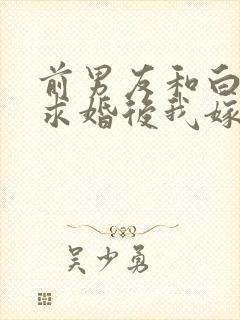 前男友和白
求婚後我嫁
吴少勇